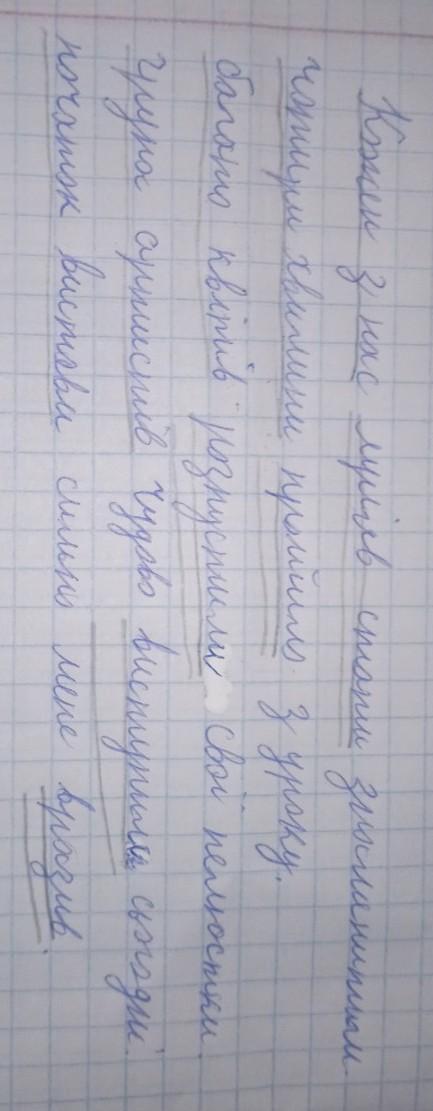 Кожен з нас мусив стати зрозумілим.
чотири хвилини пройшло з уроку.
багато квітів розпустили свої пелюстки.
група артистів чудово виступила сьогодні.
початок вистави сильно мене вразив.